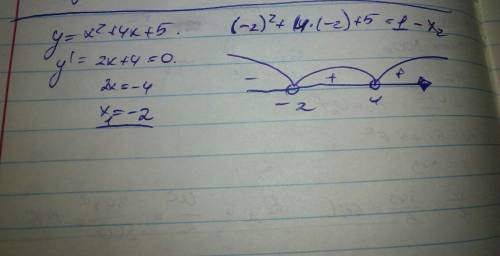 y = x² + 4x + 5.
y' = 2x + 4 = 0.
2x = -4
x₁ = -2
(-2)² + 4·(-2) + 5 = 1 - x₂
- + +
-2 4